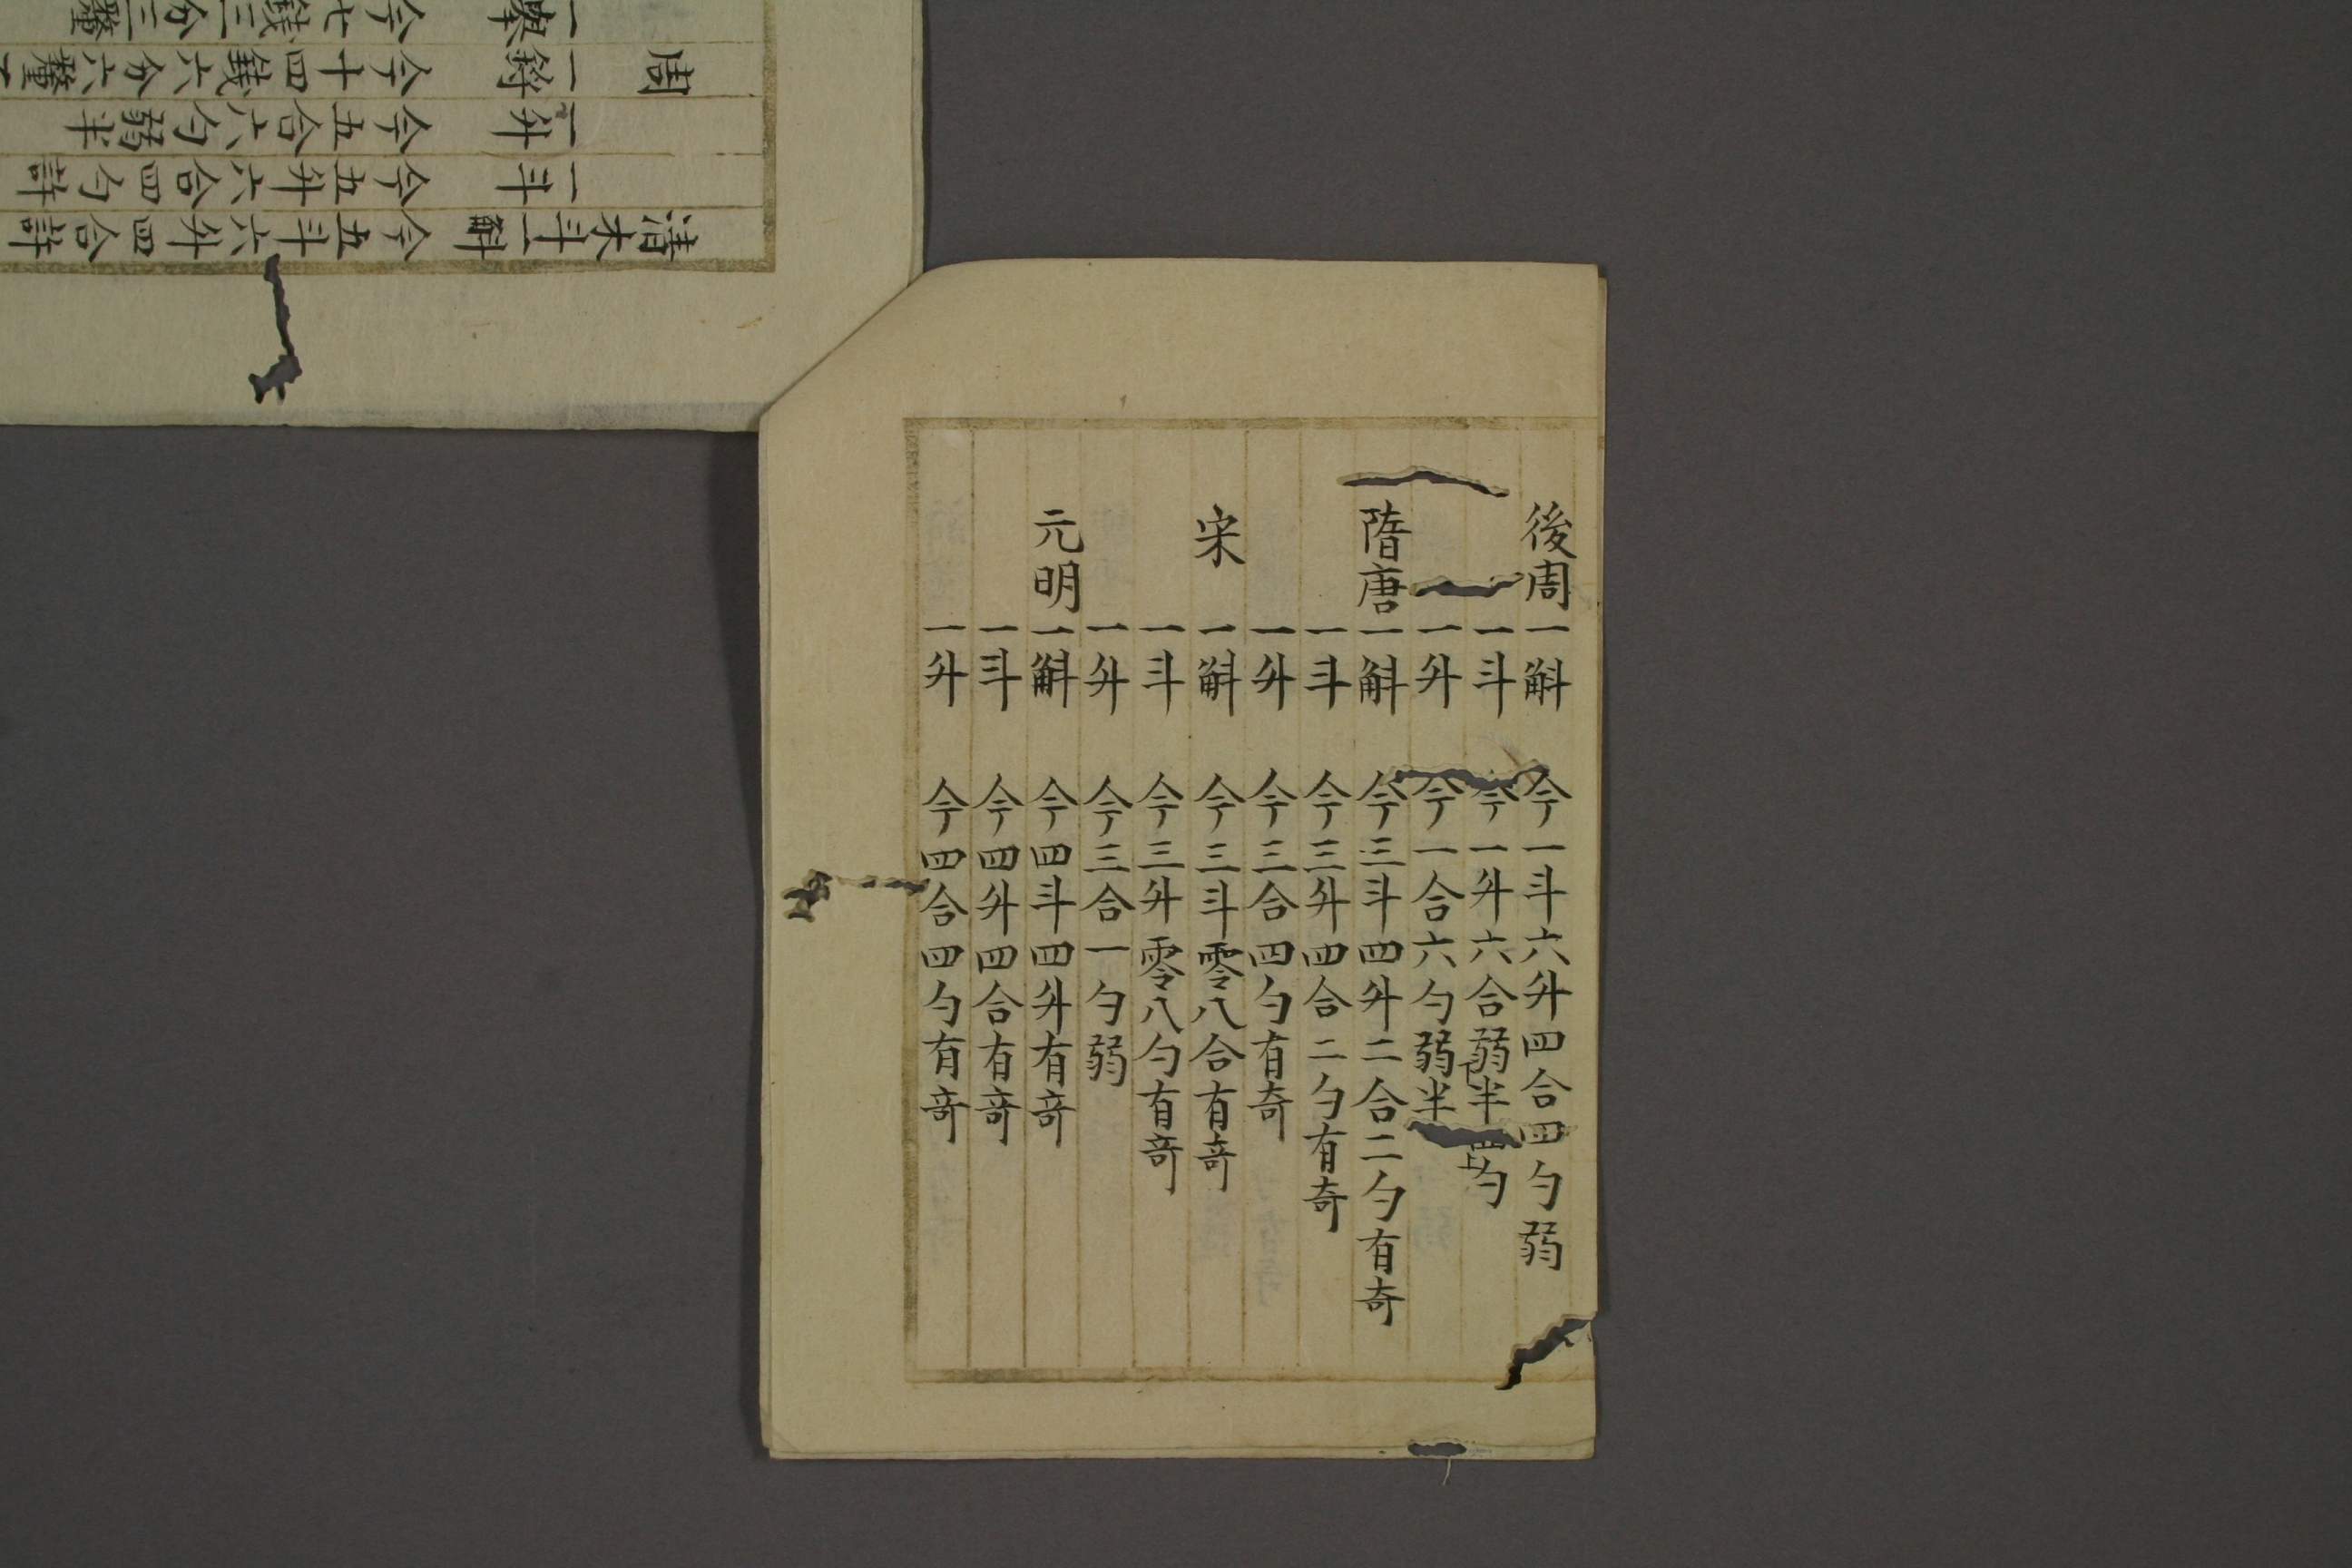 清木斗一斛 今五斗六升四合許
一斗 今五升六合四勺許
一升 今五合六勺弱半
周 一鋝 今十四錢六分六釐
一舉 今七錢三分三釐
後周一斛 今一斗六升四合四勺弱
一斗 今一升六合弱半四勺
下 上
一升 今一合六勺弱半
隋唐一斛 今三斗四升二合二勺有奇
一斗 今三升四合二勺有奇
一升 今三合四勺有奇
宋 一斛 今三斗零八合有奇
一斗 今三升零八勺有奇
一升 今三合一勺弱
元明一斛 今四斗四升有奇
一斗 今四升四合有奇
一升 今四合四勺有奇